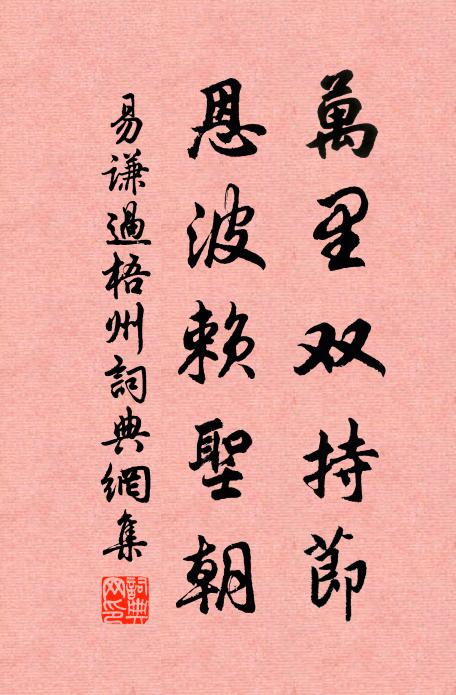 萬里双持節
恩波賴聖朝
易谦過梧州詞典網集
詞典網印